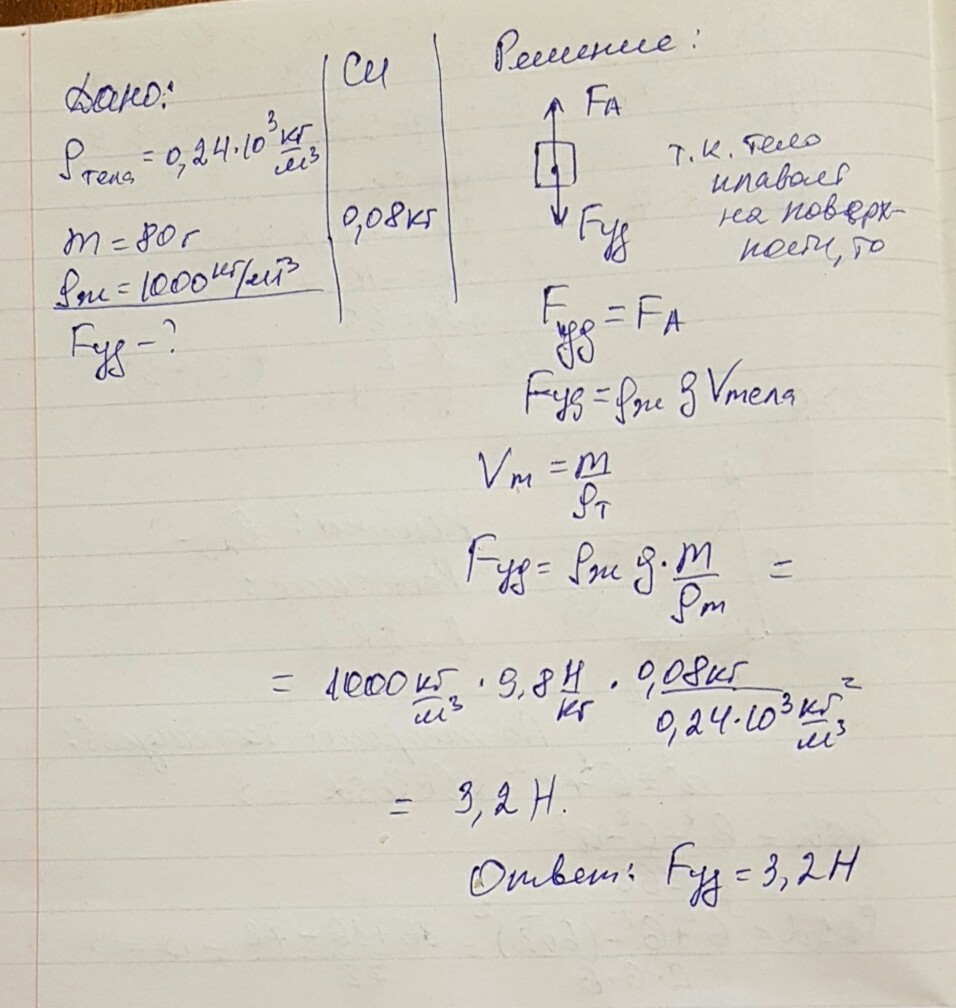 Дано:
ρтела = 0,24·10³ кг/м³
m = 80г
ρж = 1000 кг/м³
Fуд - ?
СИ
0,08 кг
Решение:
FA
Fуд
т.к. тело
плавает
на поверх-
ности, то
Fуд = FA
Fуд = ρж g Vтела
Vт = m/ρт
Fуд = ρж g · m/ρт =
= 1000 кг/м³ · 9,8 Н/кг · 0,08кг/0,24·10³ кг/м³ =
= 3,2 Н.
Ответ: Fуд = 3,2 Н